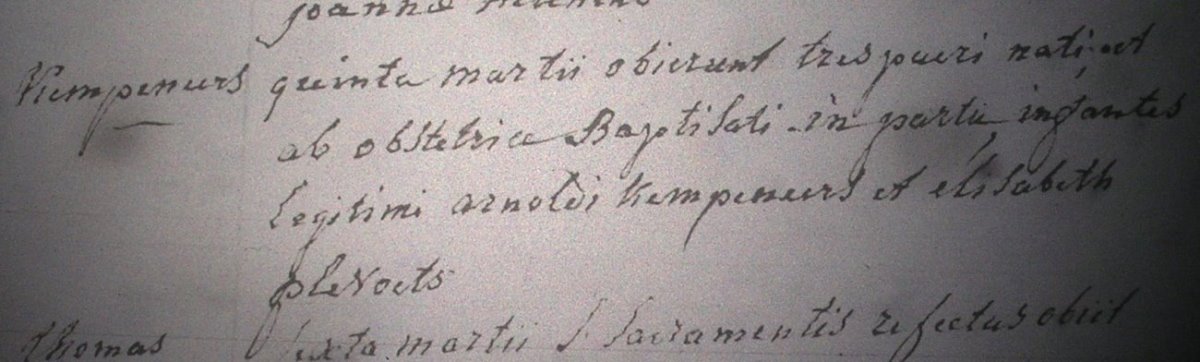 joannæ
Kempeneers quinta martii obierunt tres pueri nati, et
ab obstetrice Baptisati in partu, infantes
legitimi arnoldi kempeneers et elisabeth
plevoets
thomas sexta martii S Sacramentis refectus obiit